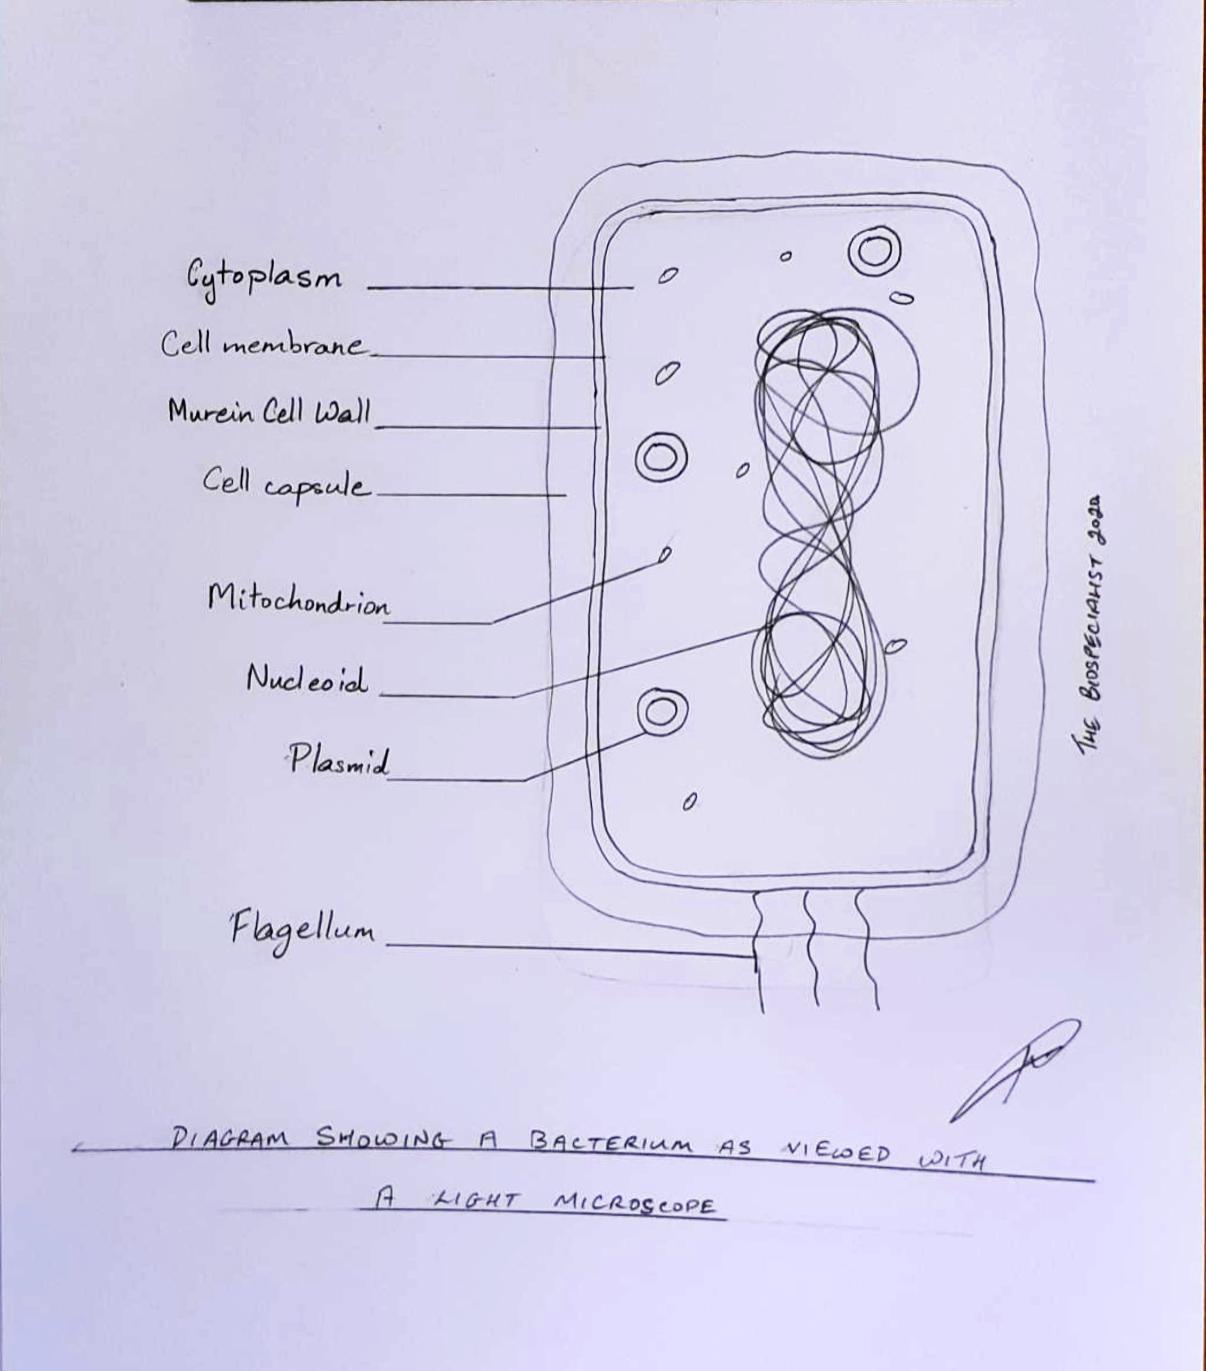 Cytoplasm
Cell membrane
Murein Cell Wall
Cell capsule
Mitochondrion
Nucleoid
Plasmid
Flagellum
THE BIOSPECIALIST 2020
DIAGRAM SHOWING A BACTERIUM AS VIEWED WITH
A LIGHT MICROSCOPE